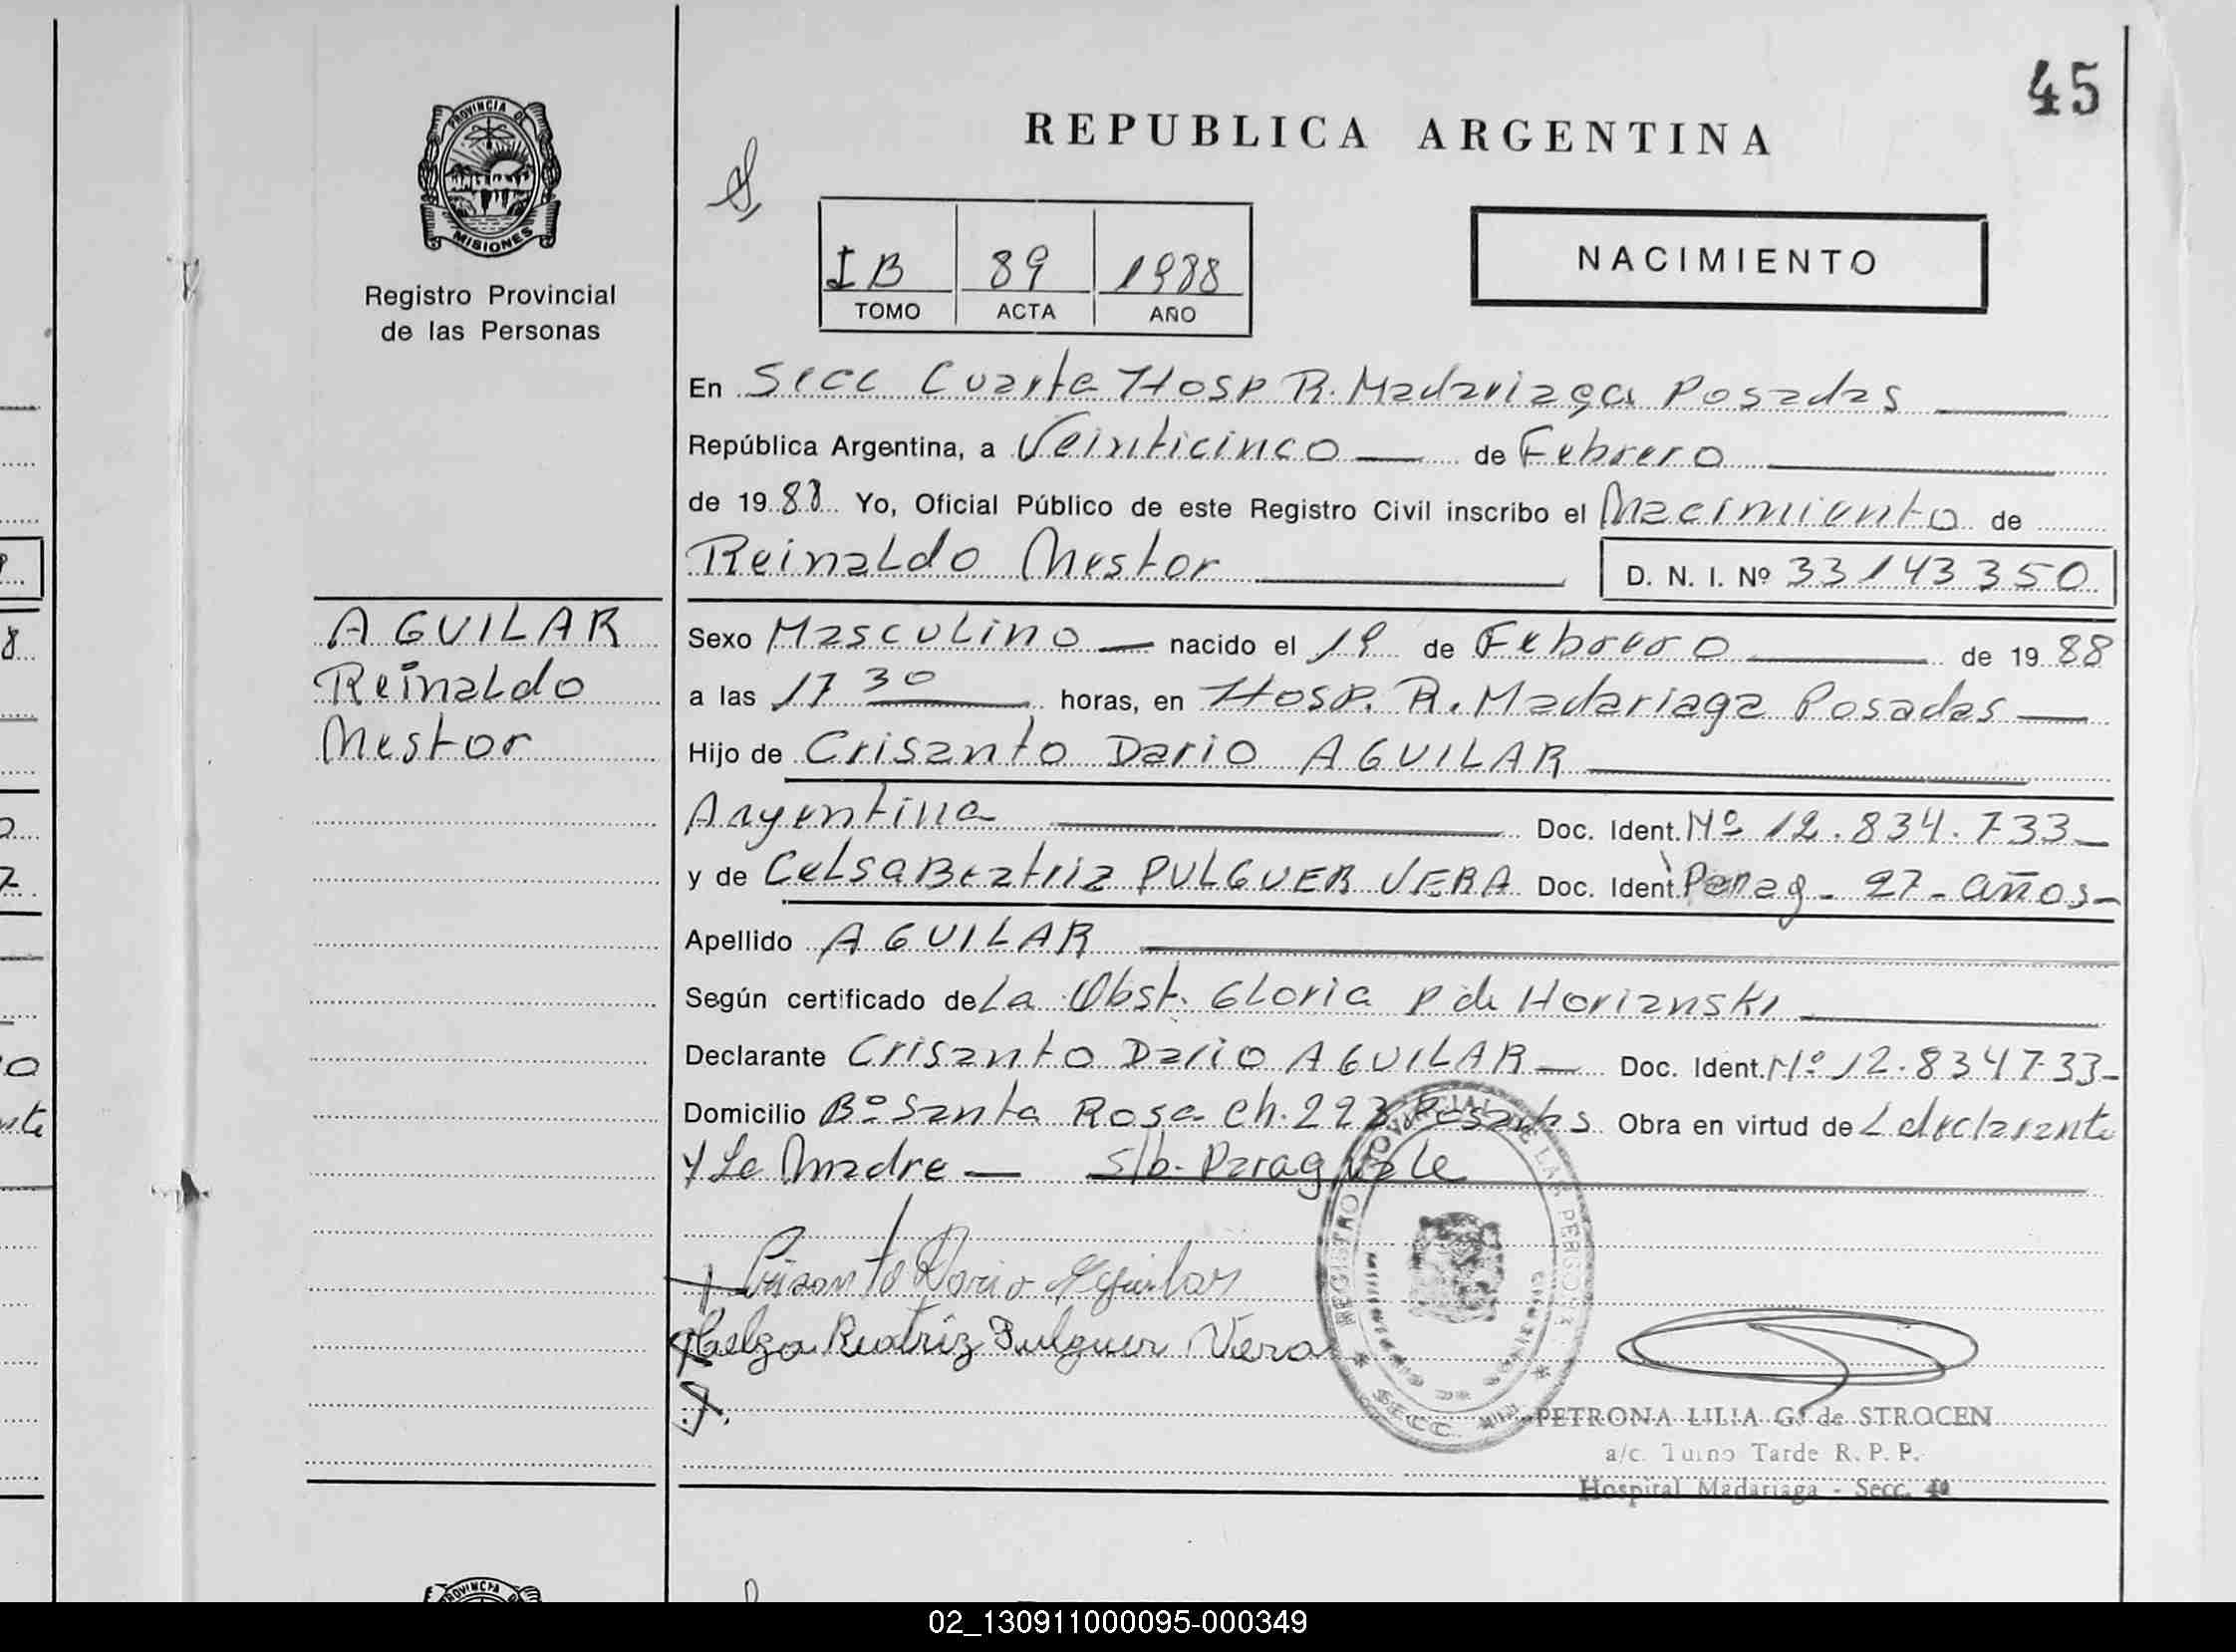 45
PROVINCIA DE
MISIONES
Registro Provincial
de las Personas
REPUBLICA ARGENTINA
I B 89 1988
TOMO ACTA AÑO
NACIMIENTO
En Secc Cuarta Hosp R. Madariaga Posadas
República Argentina, a Veinticinco de Febrero
de 1988 Yo, Oficial Público de este Registro Civil inscribo el Nacimiento de
Reinaldo Nestor D. N. I. Nº 33143350
AGUILAR
Reinaldo
Nestor
Sexo Masculino nacido el 19 de Febrero de 1988
a las 17 30 horas, en Hosp. R. Madariaga Posadas
Hijo de Crisanto Dario AGUILAR
Argentina Doc. Ident. Nº 12.834.733
y de Celsa Beatriz PULGUER VERA Doc. Ident. Parag - 27 - años
Apellido AGUILAR
Según certificado de La Obst. Gloria P de Horianski
Declarante Crisanto Dario AGUILAR Doc. Ident. Nº 12.834733
Domicilio Bº Santa Rosa Ch. 223 Posadas Obra en virtud de L declarante
y La Madre — S/b. Parag Vale
Crisanto Dario Aguilar
Celza Beatriz Pulguer Vera
REGISTRO PROVINCIAL DE LAS PERSONAS
SECC.
PETRONA LILIA G. de STROCEN
a/c. Turno Tarde R. P. P.
Hospital Madariaga - Secc. 4ª
PROVINCIA
02_130911000095-000349